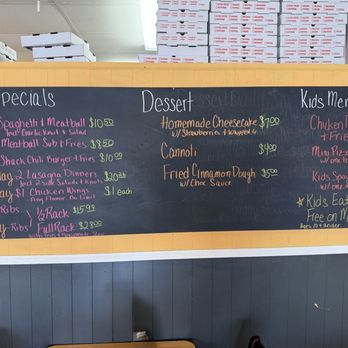 pecials
Spaghetti & Meatball $10.50
Incl Garlic Knot & Salad
Meatball Sub & Fries $8.50
Shack Chili Burger & Fries $10.00
ay 2 Lasagna Dinners $20
Incl 2 side Salads & Knots
ay $1 Chicken Wings $1 each
Any Flavor No Limit
Ribs 1/2 Rack $15.99
y-Ribs Full Rack $28.00
With Fries & Homemade Slaw
Dessert
Homemade Cheesecake $7.00
w/ Strawberries & Whipped
Cannoli $4.00
Fried Cinnamon Dough $5.00
w/ Choc Sauce
Kids Men
Chicken
& Frie
Mini Pizz
w/ one
Kids Spag
w/ one
Kids Eat
Free on M
Ages 10 & Under